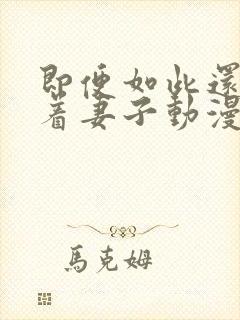 即便如此還
着妻子動漫
馬克姆